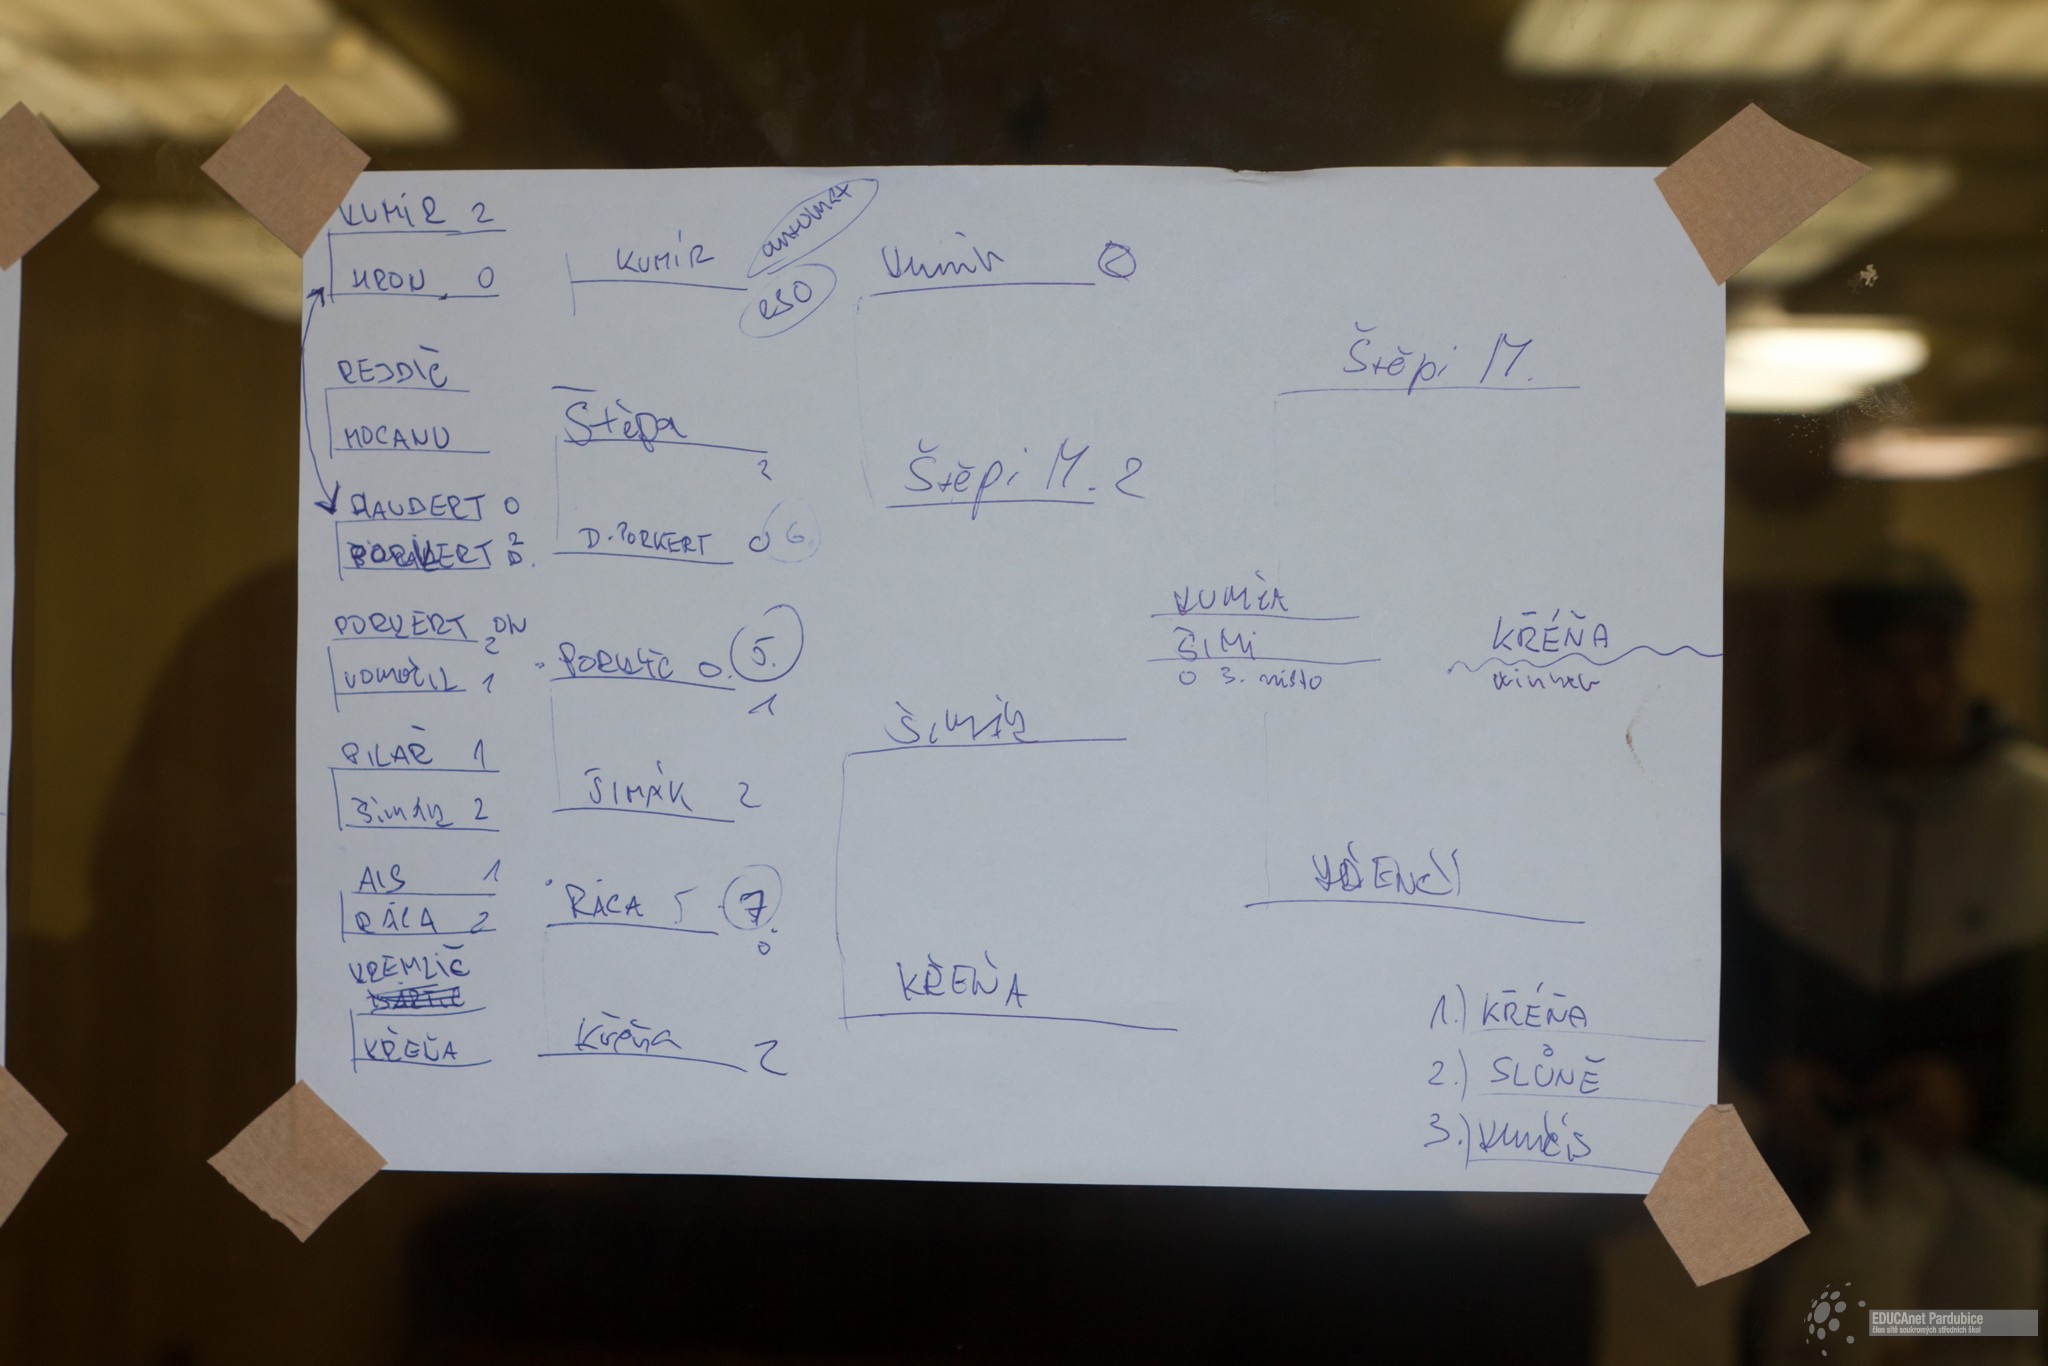 KUMÍR 2
HRON 0
REJDIČ
MOCANU
HAUDERT 0
PORKERT D. 2
PORKERT ON 2
VOMOČIL 1
PILAŘ 1
Šimák 2
AIS 1
RÁCA 2
KREMLIČ
KŘEŇA
KUMÍR
automat
RSO
Štěpa 2
D. PORKERT 0 6.
0 5.
1
ŠIMÁK 2
RÁCA 7
0
Křeňa 2
Kumír 0
Štěpi M. 2
Šimák
KŘEŇA
Štěpi M.
KUMÍR
ŠIMI
O 3. místo
KŘÉŇA
winner
1.) KŘÉŇA
2.) SLŮNĚ
3.)
EDUCAnet Pardubice
člen sítě soukromých středních škol